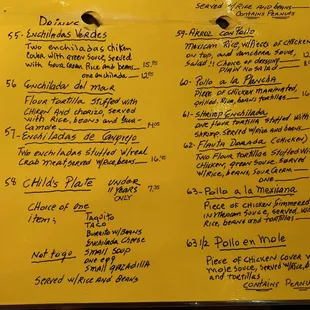 Dining
55- Enchiladas Verdes
Two enchiladas chiken
cover with green souce, served
with sour cream Rice and beans— 15.95
one enchilada — 12.95
56 Enchiladas del mar
Flour tortilla stuffed with
shrimp and chorizo served
with rice, beans and
14.95
57- Enchiladas de Cangrejo
Two enchiladas stuffed w/real
Crab meat, served w/rice, beans— 16.95
58 Child's Plate UNDER
11 YEARS
ONLY 7.95
Choice of one
items: Taquito
Taco
Burrito w/Beans
Enchilada Cheese
Not to go Small Soup
one egg
small quezadilla
Served w/Rice and Beans
Served w/Rice and beans
CONTAINS PEANUTS
59- Arroz con Pollo
Mexican Rice, w/pieces of chicken
on top, and ranchera souce,
Salad!! Choice of dressing
Plain no salad
60- Pollo a la Plancha
Piece of chicken marinated,
grilled Rice, beans tortillas
61- Shrimp Enchilada
one flour tortilla stuffed with
shrimp. Served w/rice and beans
62- Flauta Dorada (chicken)
Two flour tortillas stuffed w/
chicken, green souce served
w/rice, beans, sour cream
one
63- Pollo a la Mexicana
Piece of chicken simmered
in souce, served, w/
rice, beans and tortillas
63 1/2 Pollo en Mole
Piece of chicken cover w/
mole souce, served w/rice, b
and tortillas
CONTAINS PEANU